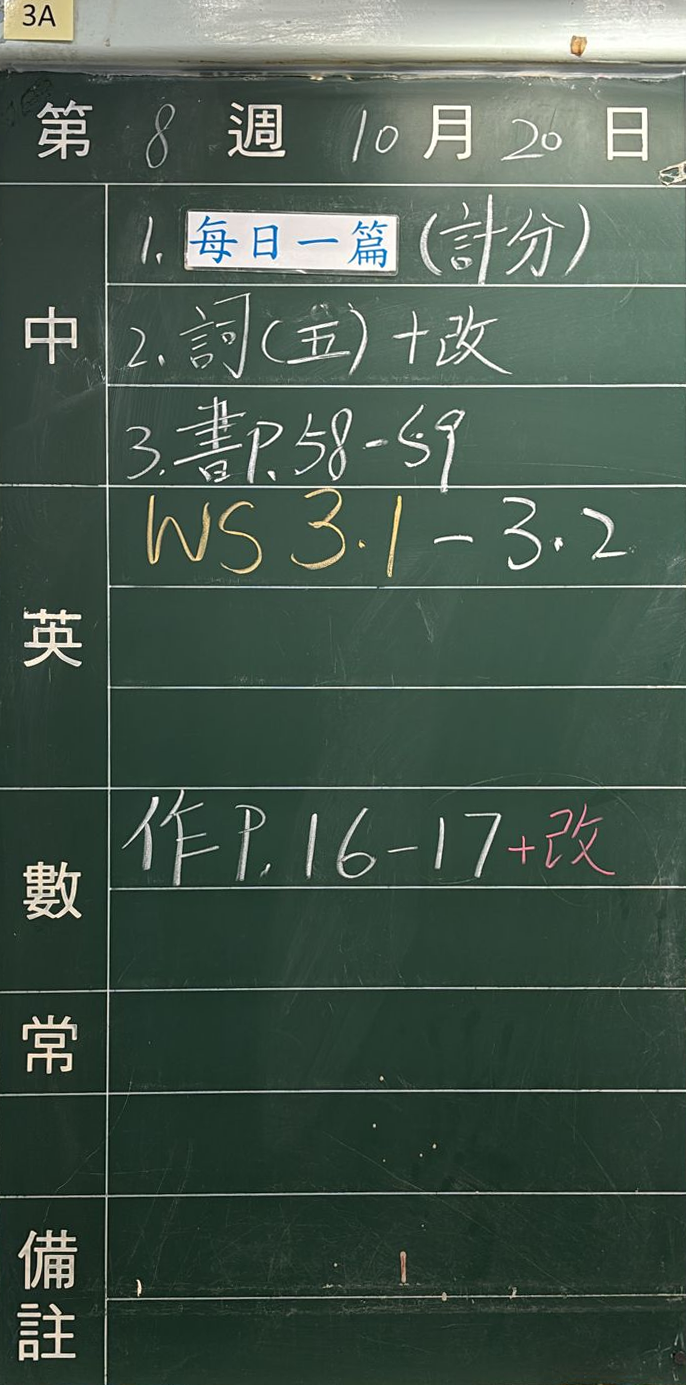 3A
第 8 週 10 月 20 日
中
1. 每日一篇 (計分)
2. 詞(五)+改
3. 書P.58-59
英
WS 3.1-3.2
數
作P.16-17+改
常
備註